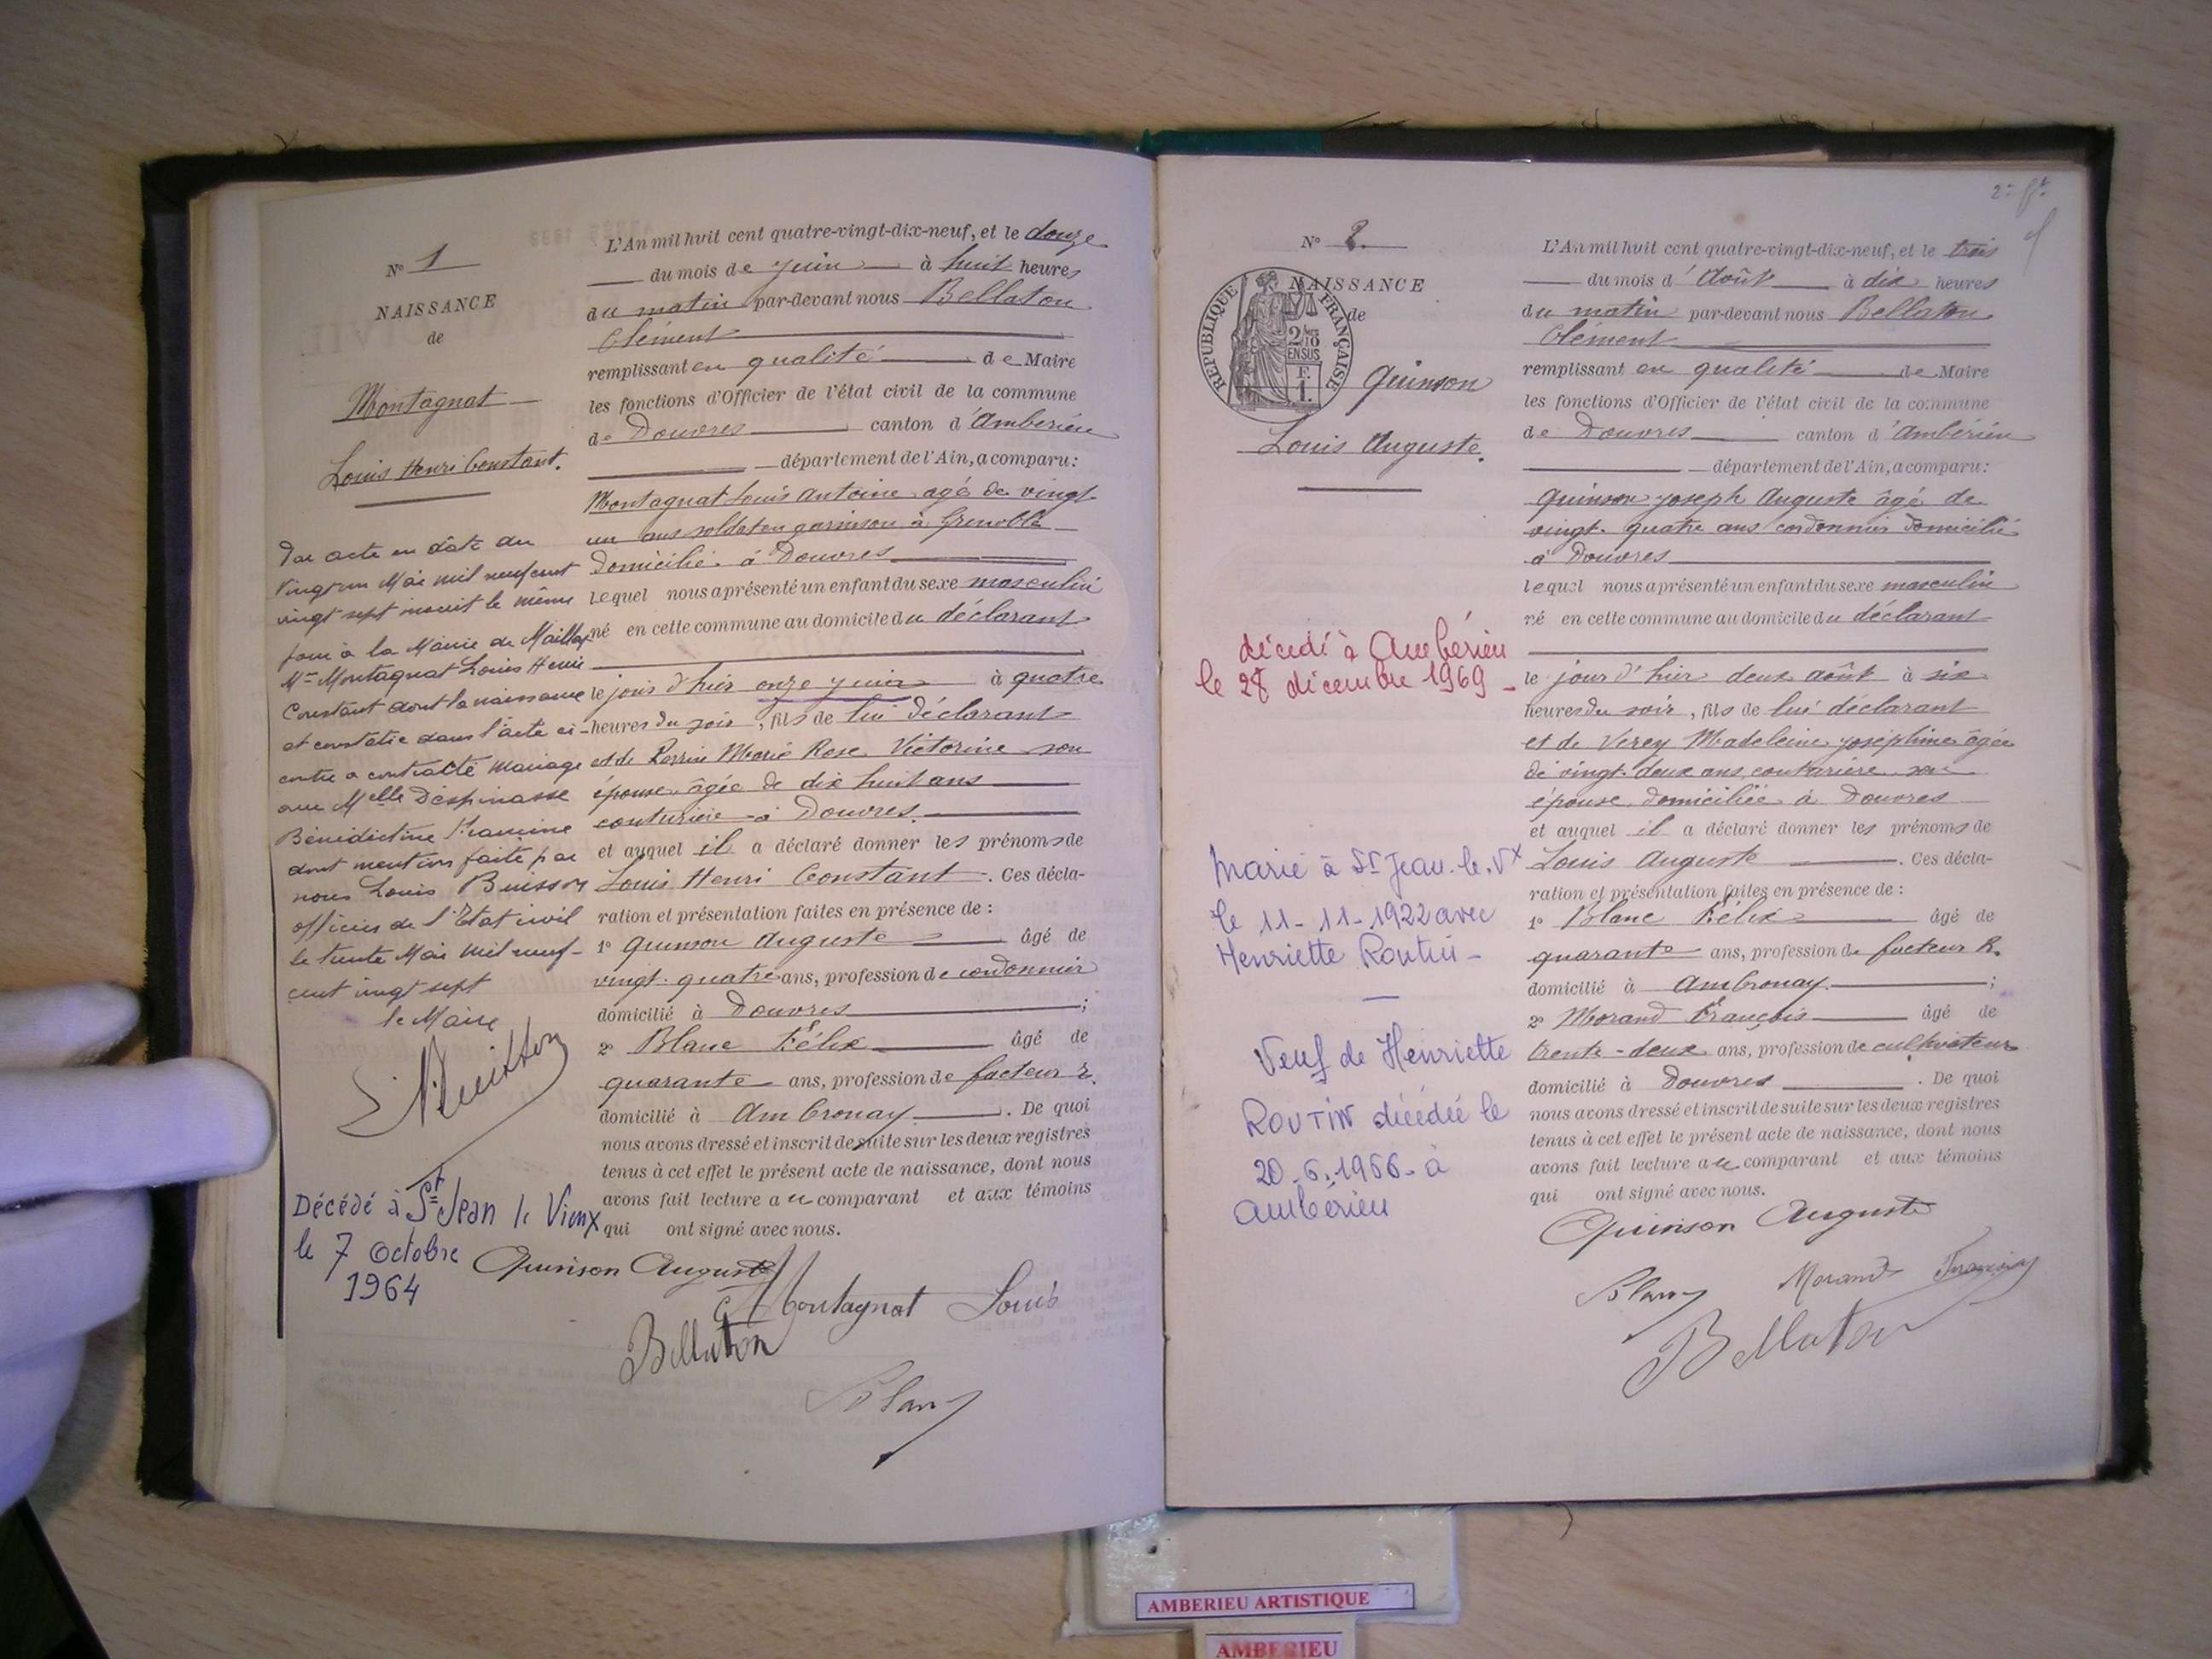 N° 1
NAISSANCE
de
Montagnat
Louis Henri Constant.
Par acte en date du
Vingt un Mai mil neuf cent
vingt sept inscrit le même
jour à la Mairie de Maillat
Mr Montagnat Louis Henri
Constant dont la naissance
est constatée dans l'acte ci-
contre a contracté mariage
avec Melle Despinasse
Bénédictine Francine
dont mention faite par
nous Louis Buisson
officier de l'Etat civil
le trente Mai mil neuf-
cent vingt sept
le Maire
Décédé à St Jean le Vieux
le 7 Octobre
1964
L'An mil huit cent quatre-vingt-dix-neuf, et le douze
du mois de juin à huit heures
du matin par-devant nous Bellaton
Clément
remplissant en qualité de Maire
les fonctions d'Officier de l'état civil de la commune
de Douvres canton d'Ambérieu
département de l'Ain, a comparu :
Montagnat Louis Antoine agé de vingt
un ans soldat en garnison à Grenoble
domicilié à Douvres
lequel nous a présenté un enfant du sexe masculin
né en cette commune au domicile du déclarant
le jour d'hier onze juin à quatre
heures du soir, fils de lui déclarant
et de Perrin Marie Rose Victorine son
épouse âgée de dix huit ans
couturière à Douvres.
et auquel il a déclaré donner les prénoms de
Louis Henri Constant. Ces décla-
ration et présentation faites en présence de :
1° Quinson Auguste âgé de
vingt-quatre ans, profession de cordonnier
domicilié à Douvres ;
2° Blanc Félix âgé de
quarante ans, profession de facteur r.
domicilié à Ambronay. De quoi
nous avons dressé et inscrit de suite sur les deux registres
tenus à cet effet le présent acte de naissance, dont nous
avons fait lecture au comparant et aux témoins
qui ont signé avec nous.
Quinson Auguste
Montagnat Louis
Bellaton
Blanc
2e ft.
N° 2.
NAISSANCE
de
RÉPUBLIQUE FRANÇAISE
2/10
EN SUS
F.
1.
Quinson
Louis Auguste.
décédé à Ambérieu
le 28 décembre 1969
Marié à St Jean-le-Vx
le 11-11-1922 avec
Henriette Routin
Veuf de Henriette
ROUTIN décédée le
20.6.1966 à
Ambérieu
L'An mil huit cent quatre-vingt-dix-neuf, et le trois
du mois d'Août à dix heures
du matin par-devant nous Bellaton
Clément
remplissant en qualité de Maire
les fonctions d'Officier de l'état civil de la commune
de Douvres canton d'Ambérieu
département de l'Ain, a comparu :
Quinson Joseph Auguste âgé de
vingt-quatre ans cordonnier domicilié
à Douvres
lequel nous a présenté un enfant du sexe masculin
né en cette commune au domicile du déclarant
le jour d'hier deux août à six
heures du soir, fils de lui déclarant
et de Verey Madeleine Joséphine âgée
de vingt-deux ans, couturière son
épouse domiciliée à Douvres
et auquel il a déclaré donner les prénoms de
Louis Auguste. Ces décla-
ration et présentation faites en présence de :
1° Blanc Félix âgé de
quarante ans, profession de facteur R.
domicilié à Ambronay. ;
2° Morand François âgé de
trente-deux ans, profession de cultivateur
domicilié à Douvres. De quoi
nous avons dressé et inscrit de suite sur les deux registres
tenus à cet effet le présent acte de naissance, dont nous
avons fait lecture au comparant et aux témoins
qui ont signé avec nous.
Quinson Auguste
Blanc Morand François
Bellaton
AMBERIEU ARTISTIQUE
AMBERIEU